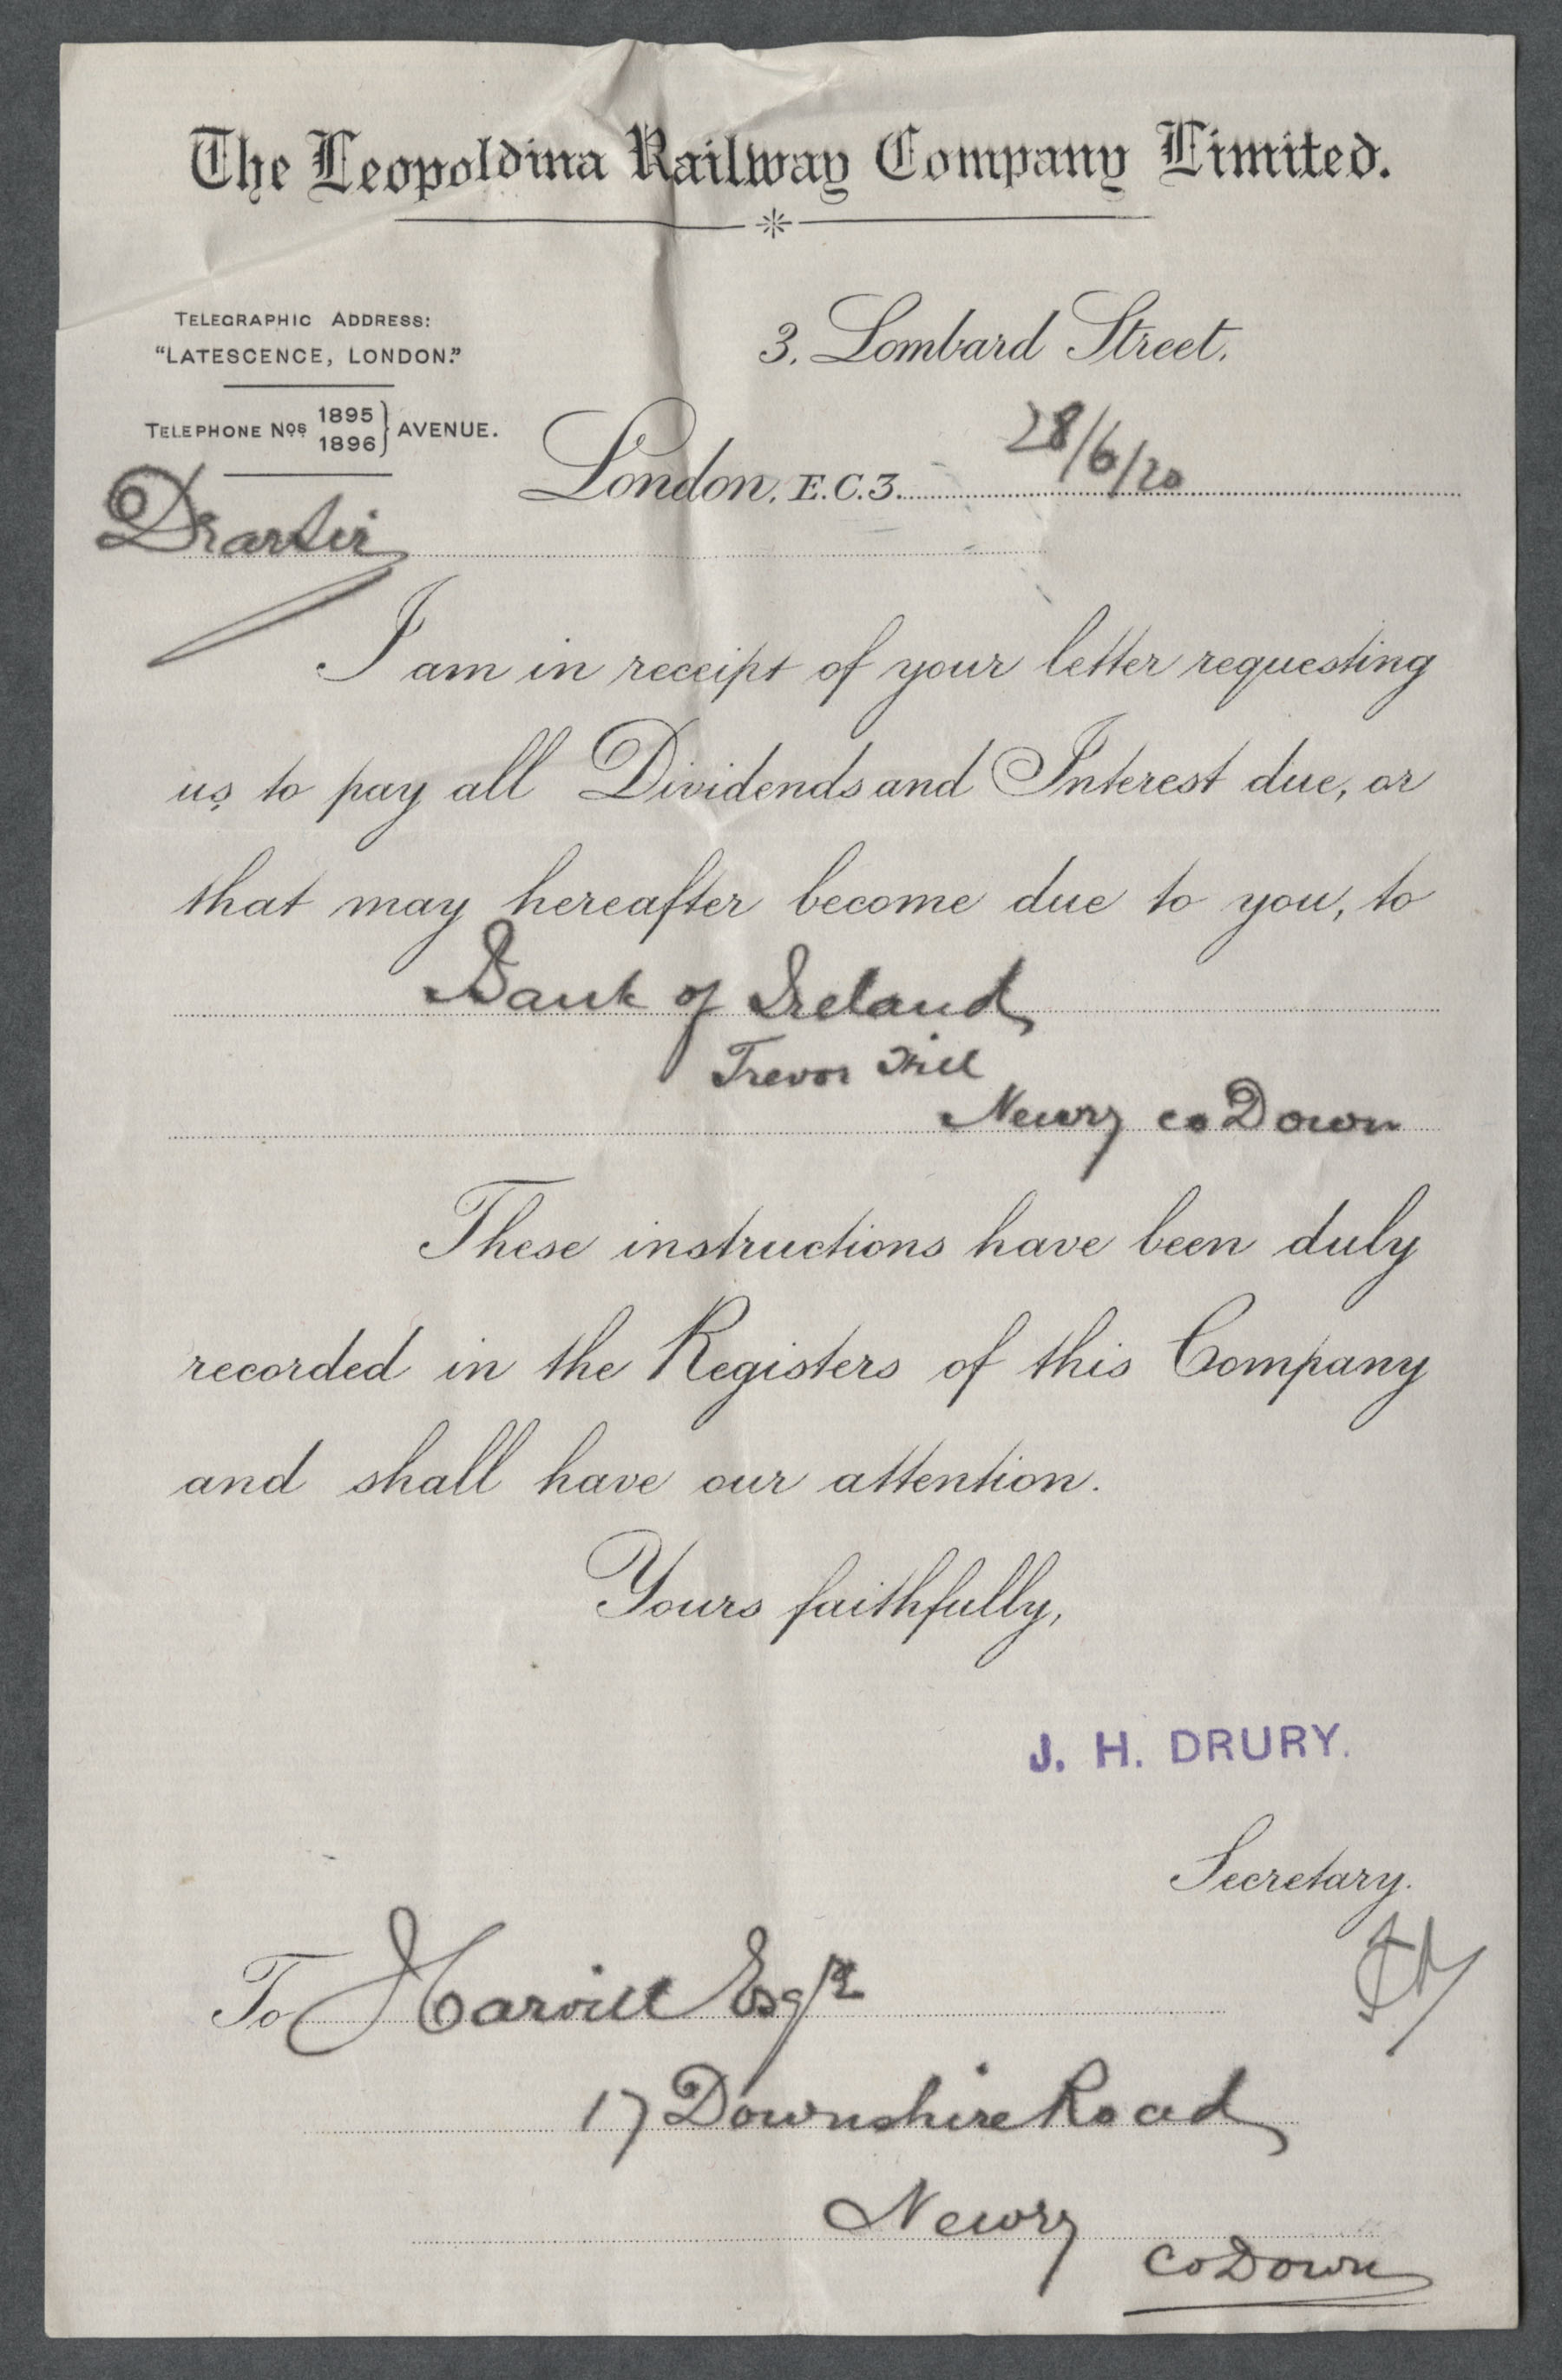 The Leopoldina Railway Company Limited.
TELEGRAPHIC ADDRESS:
"LATESCENCE, LONDON."
TELEPHONE Nos 1895
1896 } AVENUE.
3, Lombard Street,
London, E.C.3. 28/6/20
Dear Sir
I am in receipt of your letter requesting
us to pay all Dividends and Interest due, or
that may hereafter become due to you, to
Bank of Ireland
Trevor Hill
Newry Co Down
These instructions have been duly
recorded in the Registers of this Company
and shall have our attention.
Yours faithfully,
J. H. DRURY.
Secretary.
To J Carvill Esqre
17 Downshire Road
Newry
Co Down